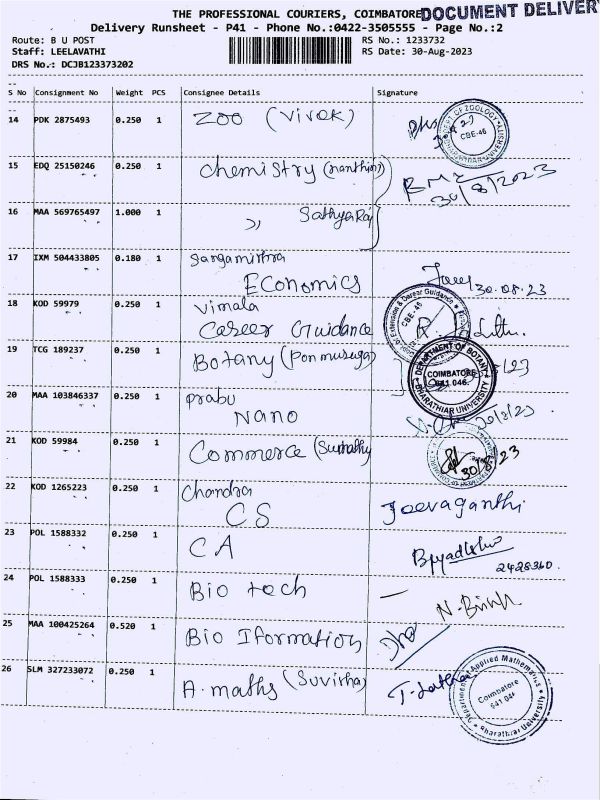 THE PROFESSIONAL COURIERS, COIMBATORE
DOCUMENT DELIVER
Delivery Runsheet - P41 - Phone No.:0422-3505555 - Page No.:2
Route: B U POST
RS No.: 1233732
Staff: LEELAVATHI
RS Date: 30-Aug-2023
DRS No.: DCJB123373202
S No Consignment No Weight PCS Consignee Details Signature
14 PDK 2875493 0.250 1 ZOO (Vivek)
DEPT OF ZOOLOGY
CBE-46
15 EDQ 25150246 0.250 1 chemistry (nanthini)
30/8/2023
16 MAA 569765497 1.000 1 ,, Sathya Raj
17 IXM 504433805 0.180 1 Sangamithra
Economics
30.08.23
18 KOD 59979 0.250 1 Vimala
Career Guidance
Extension & Career Guidance
CBE-46
19 TCG 189237 0.250 1 Botany (Ponmurugan)
DEPARTMENT OF BOTANY
COIMBATORE
641 046.
BHARATHIAR UNIVERSITY
20 MAA 103846337 0.250 1 prabu
Nano
21 KOD 59984 0.250 1 Commerce (Sumathy
30/8/23
22 KOD 1265223 0.250 1 Chandra
CS
Jeevaganthi
23 POL 1588332 0.250 1 CA
2428360.
24 POL 1588333 0.250 1 Bio tech
25 MAA 100425264 0.520 1 Bio Iformation
26 SLM 327233072 0.250 1 A. maths (Suvitha)
T. Latha
Department of Applied Mathematics
Coimbatore
641 046
Bharathiar University